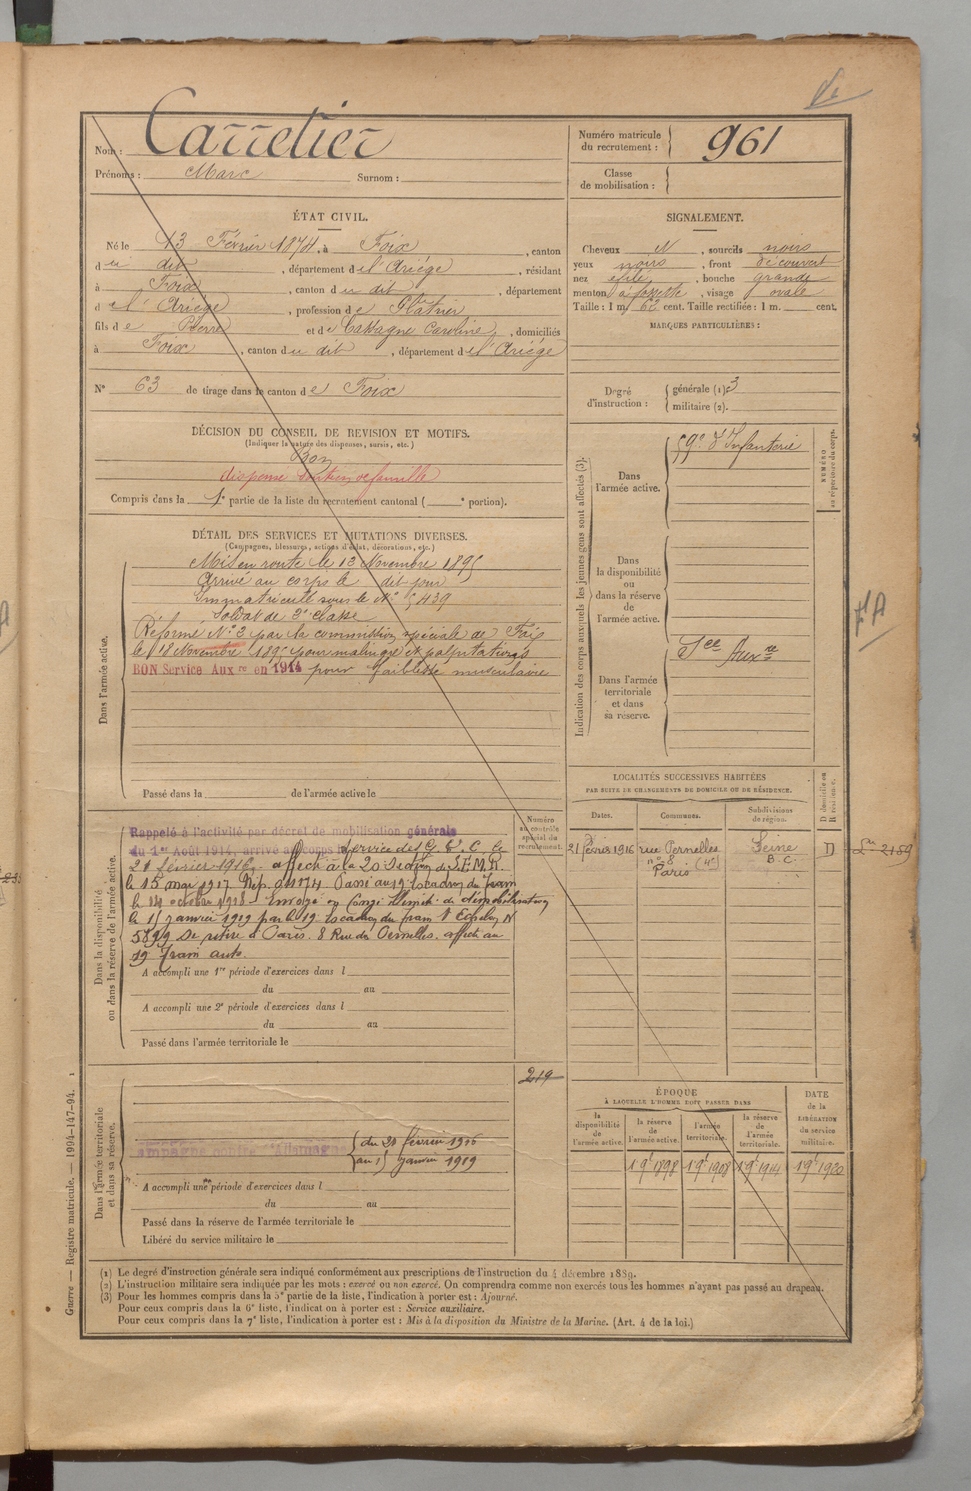 Nom : Carretier
Prénoms : Marc Surnom :
Numéro matricule du recrutement : 961
Classe de mobilisation :
ÉTAT CIVIL.
Né le 13 Février 1874, à Foix, canton
du dit, département de l'Ariège, résidant
à Foix, canton du dit, département
de l'Ariège, profession de Plâtrier
fils de Pierre et de Cassagne Caroline, domiciliés
à Foix, canton du dit, département de l'Ariège
N° 63 de tirage dans le canton de Foix
SIGNALEMENT.
Cheveux N, sourcils noirs
yeux noirs, front découvert
nez effilé, bouche grande
menton à fossette, visage ovale
Taille : 1 m. 62 cent. Taille rectifiée : 1 m. cent.
MARQUES PARTICULIÈRES :
Degré d'instruction : générale (1) 3
militaire (2).
DÉCISION DU CONSEIL DE REVISION ET MOTIFS.
(Indiquer la nature des dispenses, sursis, etc.)
Bon
dispensé soutien de famille
Compris dans la 1e partie de la liste du recrutement cantonal ( e portion).
DÉTAIL DES SERVICES ET MUTATIONS DIVERSES.
(Campagnes, blessures, actions d'éclat, décorations, etc.)
Dans l'armée active.
Mis en route le 13 Novembre 1895
Arrivé au corps le dit jour
Immatriculé sous le N° 5439
Soldat de 2e classe
Réformé N° 2 par la commission spéciale de Foix
le 18 Novembre 1895 pour malingre et palpitations
BON Service Auxre en 1914 pour faiblesse musculaire
Passé dans la de l'armée active le
Indication des corps auxquels les jeunes gens sont affectés (3).
NUMÉRO au répertoire du corps.
Dans l'armée active.
59e d'Infanterie
Dans la disponibilité ou dans la réserve de l'armée active.
Dans l'armée territoriale et dans sa réserve.
Sce Auxre
LOCALITÉS SUCCESSIVES HABITÉES
PAR SUITE DE CHANGEMENTS DE DOMICILE OU DE RÉSIDENCE.
Dates. Communes. Subdivisions de région. D domicile ou R résidence.
21 février 1916 rue Pernelles Seine D
n° 8 (4e) B.C.
Paris
Dans la disponibilité ou dans la réserve de l'armée active.
Numéro au contrôle spécial du recrutement.
Rappelé à l'activité par décret de mobilisation générale
du 1er Août 1914, arrivé au corps le
21 février 1916. affecté à la 20e Section du S.E.M.R.
le 15 mai 1917. Passé au 19e escadron du Train
le 14 octobre 1918 - Envoyé en Congé illimité de démobilisation
le 15 janvier 1919 par le 19e escadron du Train 1er Echelon N°
5899 Se retire à Paris. 8 Rue des Pernelles. affecté au
19e Train auto.
A accompli une 1re période d'exercices dans l
du au
A accompli une 2e période d'exercices dans l
du au
Passé dans l'armée territoriale le
Dans l'armée territoriale et dans sa réserve.
219
Campagne contre l'Allemagne du 20 février 1916
au 15 janvier 1919
A accompli une période d'exercices dans l
du au
Passé dans la réserve de l'armée territoriale le
Libéré du service militaire le
ÉPOQUE
À LAQUELLE L'HOMME DOIT PASSER DANS
la disponibilité de l'armée active. la réserve de l'armée active. l'armée territoriale. la réserve de l'armée territoriale.
DATE de la LIBÉRATION du service militaire.
1 9bre 1898 1 9bre 1908 1 9bre 1914 1 9bre 1920
(1) Le degré d'instruction générale sera indiqué conformément aux prescriptions de l'instruction du 4 décembre 1889.
(2) L'instruction militaire sera indiquée par les mots : exercé ou non exercé. On comprendra comme non exercés tous les hommes n'ayant pas passé au drapeau.
(3) Pour les hommes compris dans la 5e partie de la liste, l'indication à porter est : Ajourné.
Pour ceux compris dans la 6e liste, l'indication à porter est : Service auxiliaire.
Pour ceux compris dans la 7e liste, l'indication à porter est : Mis à la disposition du Ministre de la Marine. (Art. 4 de la loi.)
Guerre — Registre matricule. — 1994-147-94.